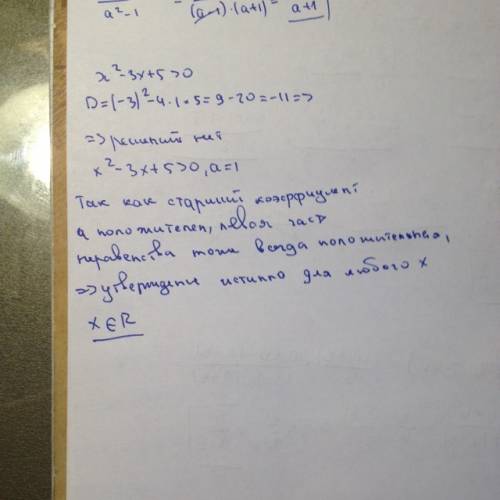 a²-1 = (a-1)·(a+1) = a+1
x²-3x+5>0
D=(-3)²-4·1·5=9-20=-11=>
=>решений нет
x²-3x+5>0, a=1
Так как старший коэффициент
a положителен, левая часть
неравенства тоже всегда положительная,
=>утверждение истинно для любого x
x∈R